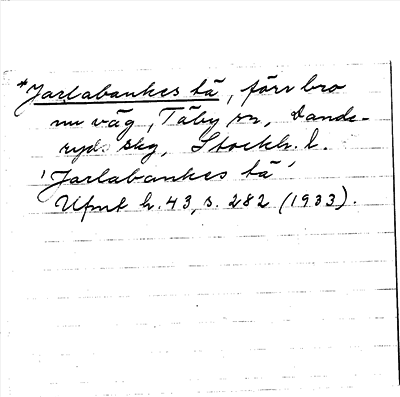 *Jarlabankes tä, förr bro
nu väg, Täby sn, Dande-
ryd. skg, Stockh. l.
'Jarlabankes tä'
Ufmt h. 43, s. 282 (1933).